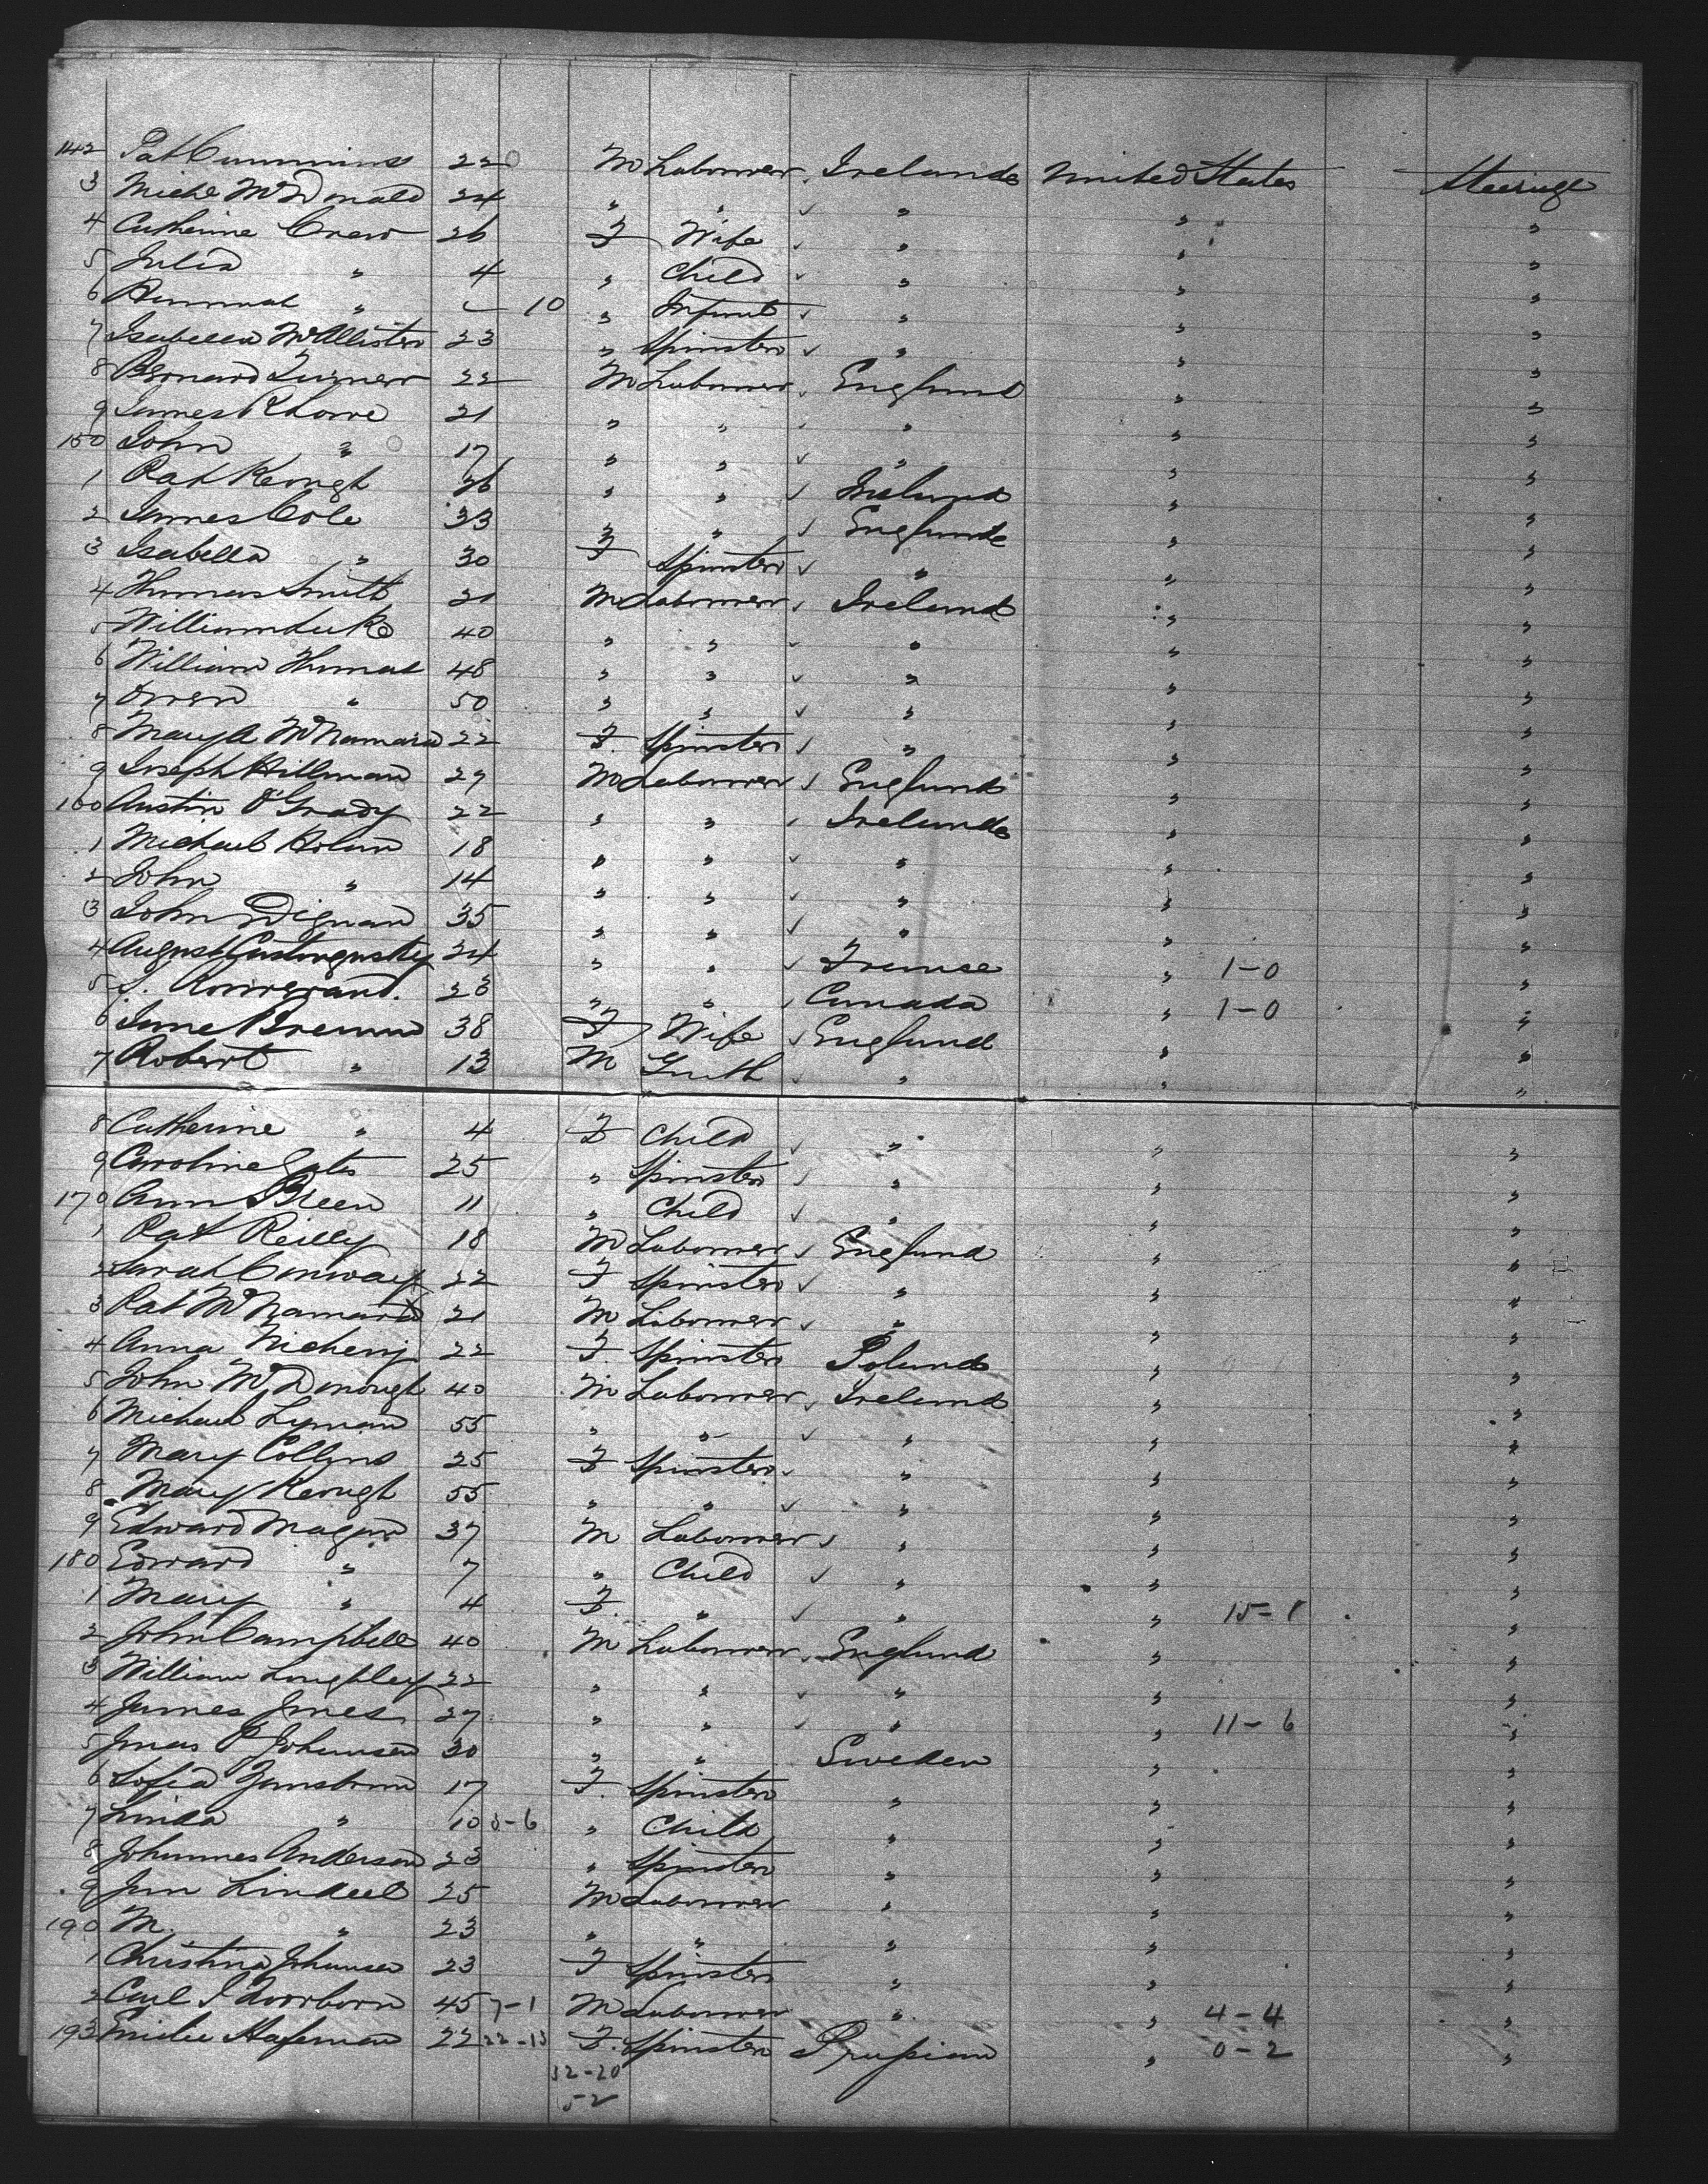 142 Pat Cummins 22 M Labourer Ireland United States Steerage
3 Michl McDonald 24 " " " " "
4 Catherine Crew 26 F Wife " " "
5 Julia " 4 " Child " " "
6 Hannah " 10 " Infant " " "
7 Isabella McAllister 23 " Spinster " " "
8 Bernard Turner 22 M Labourer England " "
9 James 21 " " " " "
150 John " 17 " " " " "
1 Pat Keough 26 " " Ireland " "
2 James Cole 33 " " England " "
3 Isabella " 30 F Spinster " " "
4 Thomas Smith 21 M Labourer Ireland " "
5 William Luke 40 " " " " "
6 William Thomas 48 " " " " "
7 Owen " 50 " " " " "
8 Mary A McNamara 22 F. Spinster " " "
9 Joseph Hillman 27 M Labourer England " "
160 Austin O'Grady 22 " " Ireland " "
1 Michael Holan 18 " " " " "
2 John " 14 " " " " "
3 John Dignan 35 " " " " "
4 August 24 " " France " 1-0 "
5 J. 23 " " Canada " 1-0 "
6 Jane Brennan 38 F Wife England " "
7 Robert " 13 M Youth " " "
8 Catherine " 4 F Child " " "
9 Caroline 25 " Spinster " " "
170 Ann Breen 11 " Child " " "
1 Pat Reilly 18 M Labourer England " "
2 Sarah Conway 22 F Spinster " " "
3 Pat McNamara 21 M Labourer " " "
4 Anna 22 F. Spinster Poland " "
5 John McDonough 40 M Labourer Ireland " "
6 Michael Lyman 55 " " " " "
7 Mary Collins 25 F Spinster " " "
8 Mary Keough 55 " " " " "
9 Edward Magan 37 M Labourer " " "
180 Edward " 7 " Child " " "
1 Mary " 4 F. " " " 15-1 "
2 John Campbell 40 M Labourer England " "
3 William Longhley 22 " " " " "
4 James Jones 27 " " " " 11-6 "
5 Jonas P Johansen 30 " " Sweden " "
6 Sofia 17 F. Spinster " " "
7 Linda " 10 5-6 " Child " " "
8 Johannes Anderson 23 " Spinster " " "
9 Jan Lindeel 25 M Labourer " " "
190 M. " 23 " " " " "
1 Christina Johansen 23 F Spinster " " "
2 Carl J 45 7-1 M Labourer " " 4-4 "
193 Emilie Hafeman 22 22-13 F. Spinster Prussian " 0-2 "
32-20
52